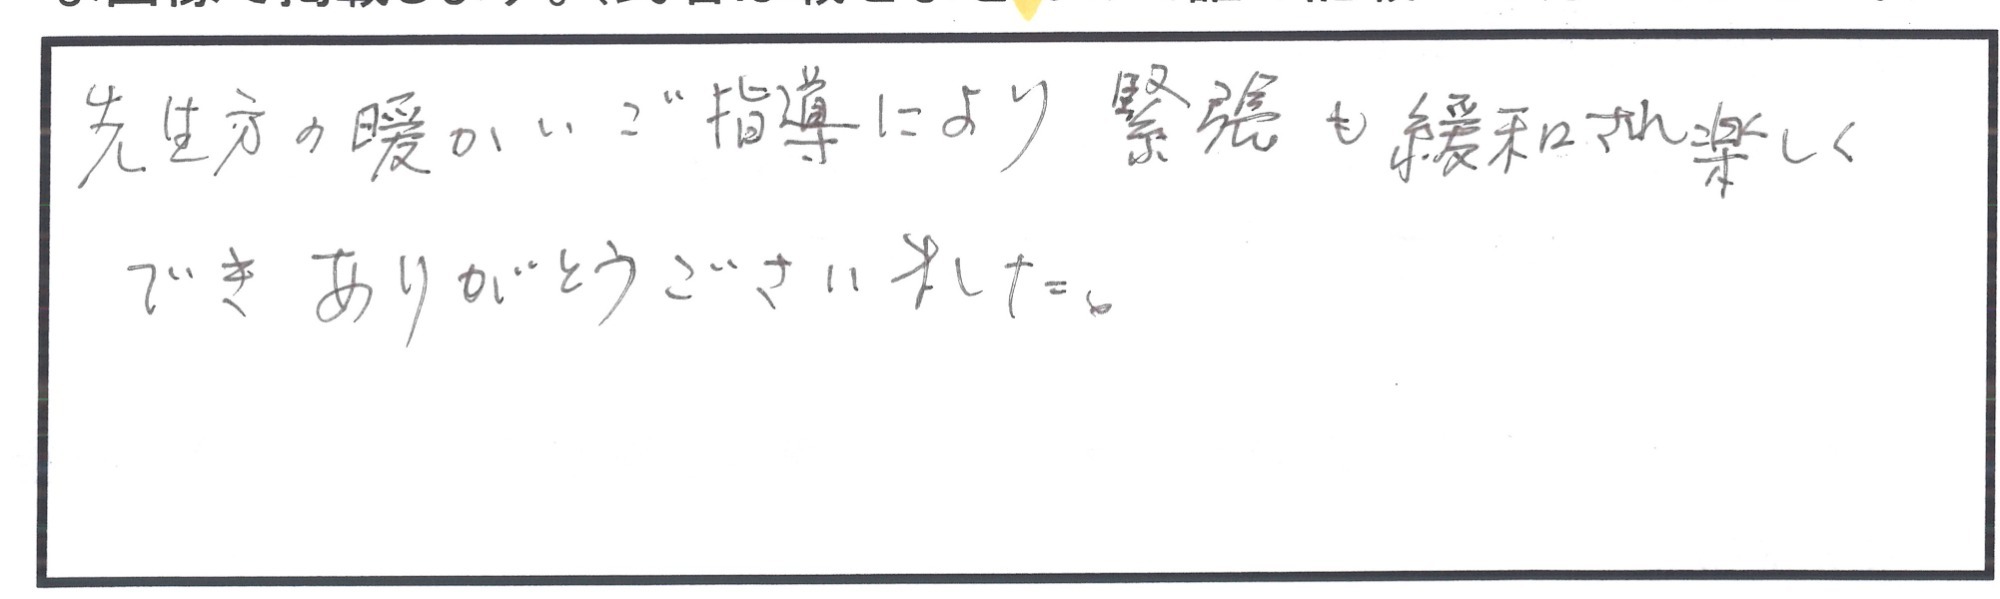 先生方の暖かいご指導により緊張も緩和され楽しく
できありがとうございました。